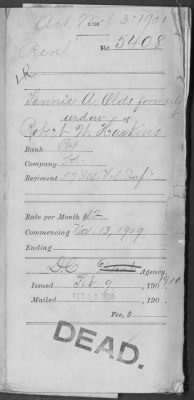 Act March 3 1901
No. 5408
Fannie A. Olds formerly
widow of
Robert W. Harkins
Rank
Company
Regiment 57 Ill. Vol. Inf.
Rate per Month $12
Commencing Nov. 13, 1909
Ending
D.C. Agency.
Issued Feb. 9 190
Mailed 190
Fee, $
DEAD.